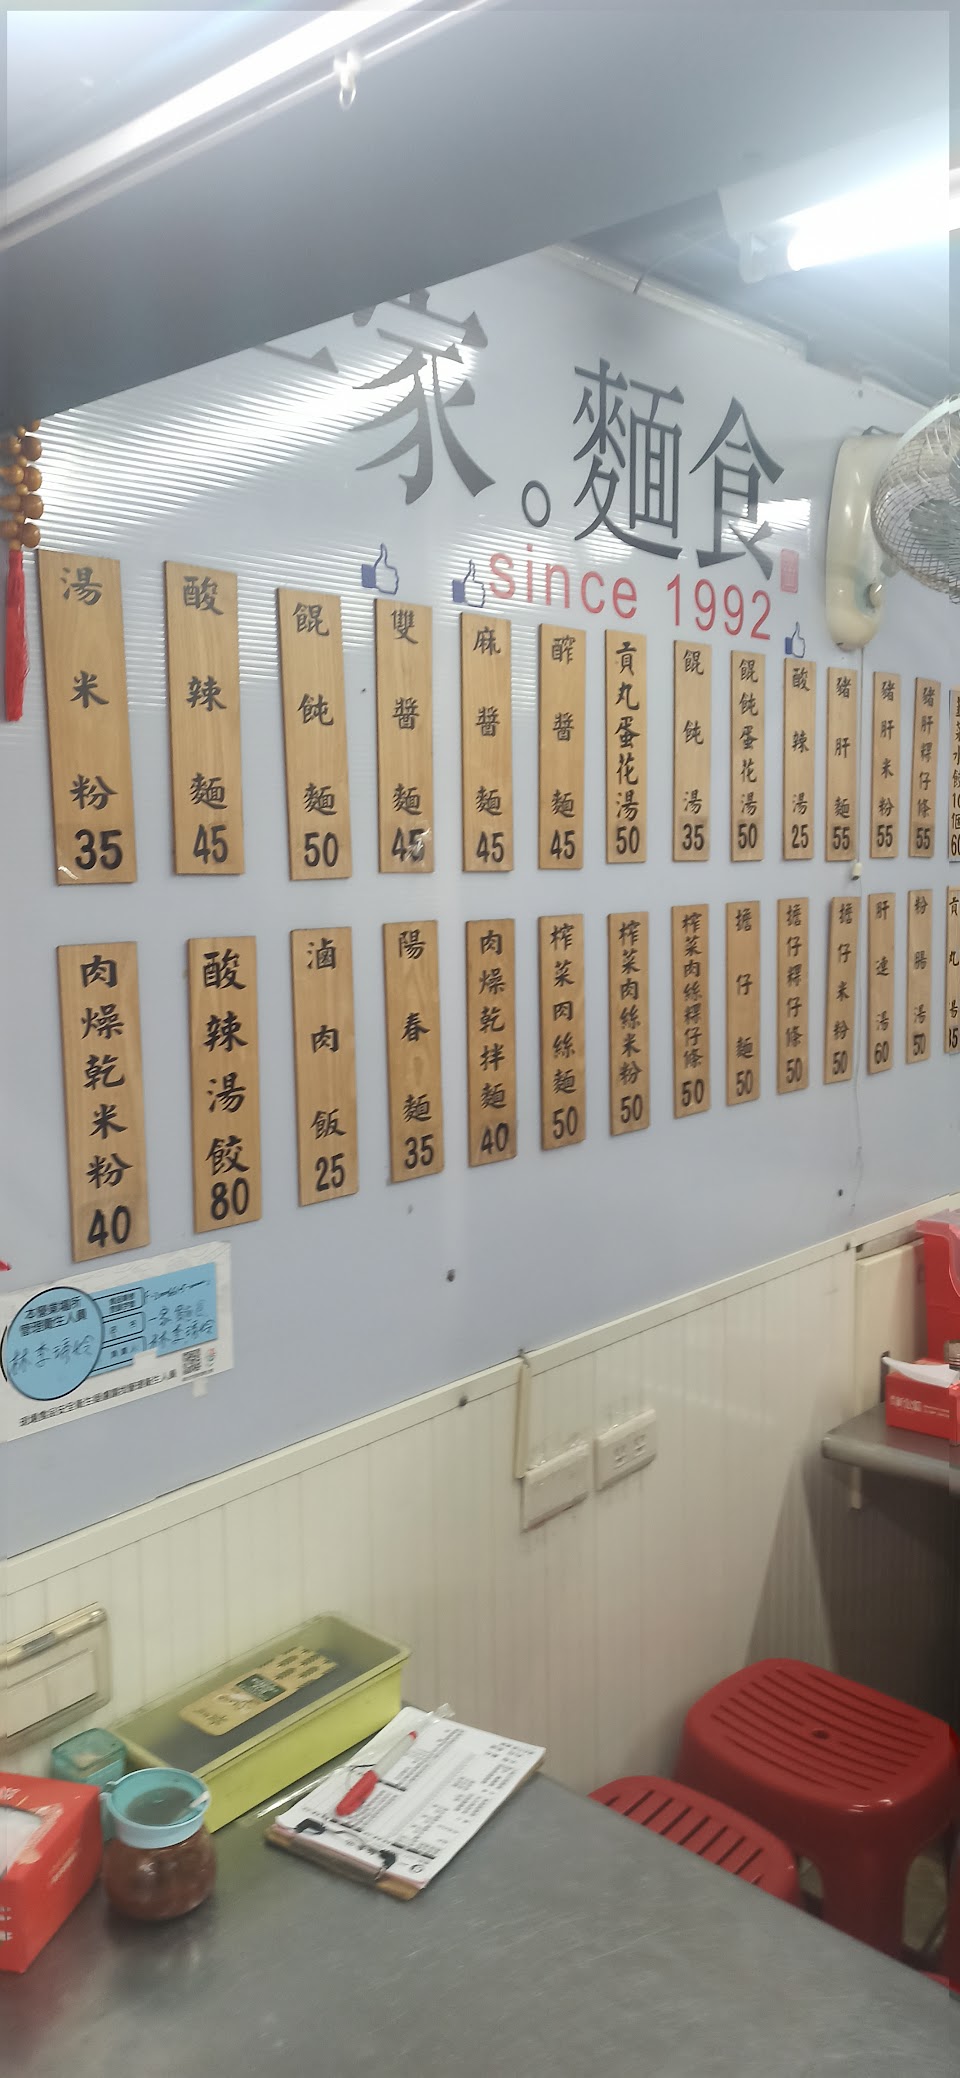 家。麵食
since 1992
湯米粉35
酸辣麵45
餛飩麵50
雙醬麵45
麻醬麵45
醡醬麵45
貢丸蛋花湯50
餛飩湯35
餛飩蛋花湯50
酸辣湯25
豬肝麵55
豬肝米粉55
豬肝粿仔條55
肉燥乾米粉40
酸辣湯餃80
滷肉飯25
陽春麵35
肉燥乾拌麵40
榨菜肉絲麵50
榨菜肉絲米粉50
榨菜肉絲粿仔條50
擔仔麵50
擔仔粿仔條50
擔仔米粉50
肝連湯60
粉腸湯50
本營業場所
管理衛生人員